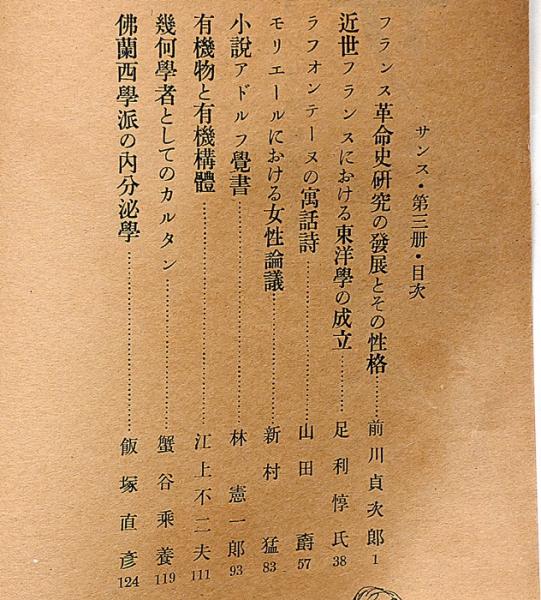 サンス・第三册・目次
フランス革命史硏究の發展とその性格………前川貞次郎 1
近世フランスにおける東洋學の成立………足利惇氏 38
ラフォンテーヌの寓話詩………山田爵 57
モリエールにおける女性論議………新村猛 83
小說アドルフ覺書………林憲一郞 93
有機物と有機構體………江上不二夫 111
幾何學者としてのカルタン………蟹谷乘養 119
佛蘭西學派の內分泌學………飯塚直彥 124